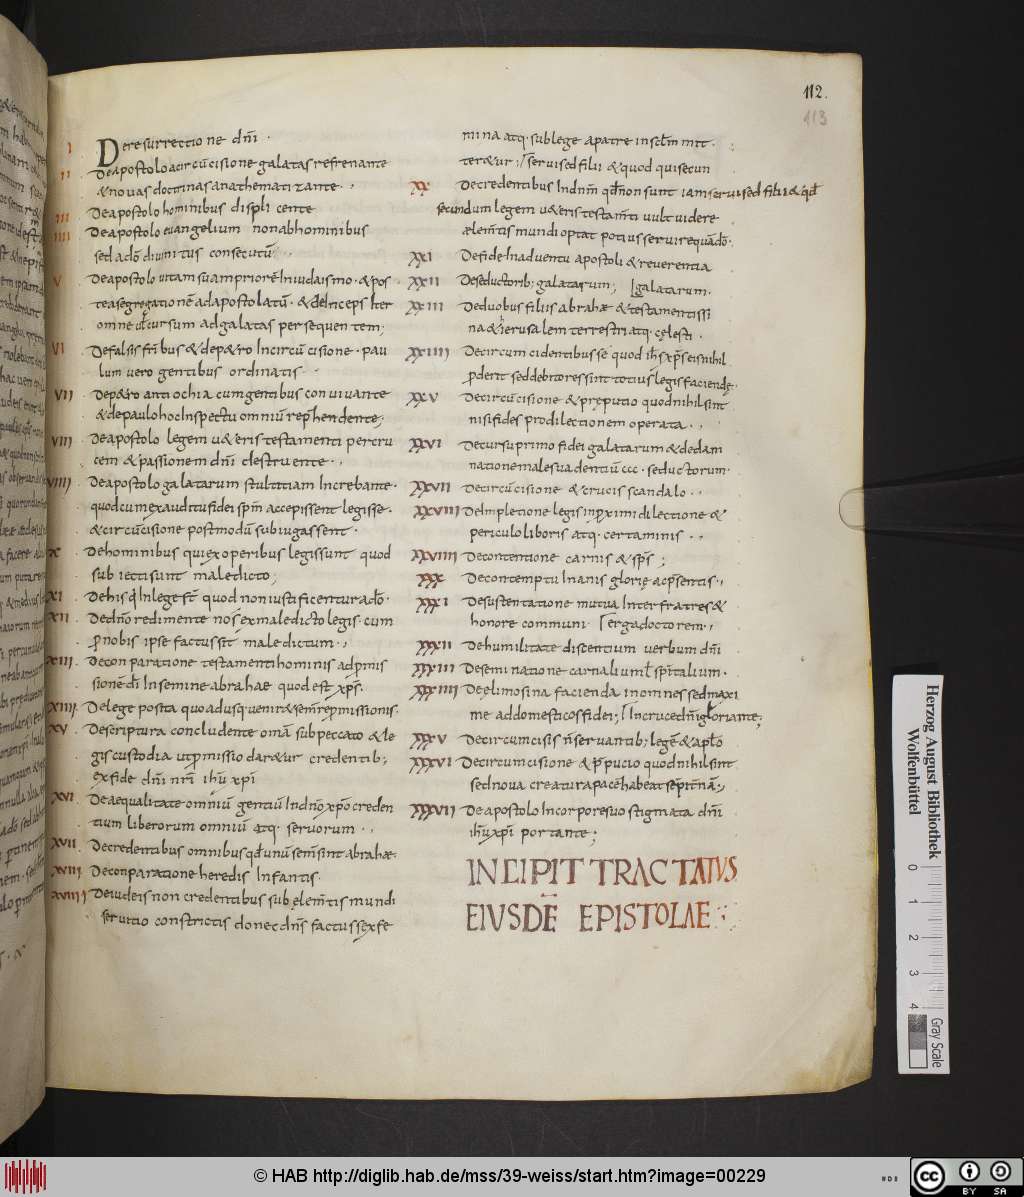 112.
113
I De resurrectione dñi ·
II De apostolo a circũcisione galatas refrenante
& nouas doctrinas anathematizante · ,
III De apostolo hominibus displicente
IIII De apostolo euangelium non ab hominibus
sed a dõ diuinitus consecutũ
V De apostolo uitam suam priorẽ in iudaismo · & pos
tea segregationẽ ad apostolatũ · & deinceps iter
omne ul cursum ad galatas persequentem ;
VI De falsis frĩbus & de p&ro In circũcisione · pau
lum uero gentibus ordinatis
VII De p&ro antiochia cum gentibus conuiuante
& de paulo hoc Inspectu omniũ rep̱hendente ;
VIII De apostolo legem u&eris testamenti per cru
cem & passionem dñi destruente · ,
VIIII De apostolo galatarum stultitiam Increbante ·
quod cum ex auditu fidei spm̃ accepissent legisse ·
& circũcisione postmodũ subiugassent ·
X De hominibus qui ex operibus legis sunt quod
subiecti sunt maledicto ;
XI De his q̇ In lege st̃ quod non iustificentur ad õ ·
XII De dño redimente nos ex maledicto legis · cum
p̱ nobis ipse factus sit maledictum · ,
XIII De conparatione testamenti hominis ad p̱mis
sionẽ dĩ In semine abrahae quod est xps̃ ·
XIIII De lege posita quoadusq· uenir& semẽ rep̱missionis ·
XV De scriptura concludente omã sub peccato & le
gis custodia ut p̱missio dar&ur credentib;
ex fide dñi nr̃i ihũ xpĩ
XVI De aequalitate omniũ gentiũ In dño xpõ creden
tium liberorum omniũ atq· seruorum · ,
XVII De credentibus omnibus qđ unũ sem̃ sint abrahae ·
XVIII De conparatione heredis Infantis ·
XVIIII De iudeis non credentibus sub elem̃tis mundi
seruitio constrictis donec dñs factus ex fe
mina atq· sub lege a patre in scl̃m mit
ter&ur ; / serui sed filii & quod qui secun
XX De credentibus In dnm̃ qđ non sunt iam serui sed filii & qđ
secundum legem u&eris testam̃ti uult uidere
aelem̃tis mundi optat potius seruire quã dõ ·
XXI De fide In aduentu apostoli & reuerentia
XXII De seductorib; galatarum ; / galatarum ·
XXIII De duobus filiis abrahae & testamentis si
na & ierusalem terrestri atq· celesti ·
XXIIII De circumcidentibus se quod ihs̃ xps̃ eis nihil
p̱derit sed debitores sint totius legis faciendę ·
XXV De circũcisione & pręputio quod nihil sint
nisi fides pro dilectionem operata · ,
XXVI De cursu primo fidei galatarum & de dam
natione male suadentiũ ccc · seductorum ·
XXVII De circũcisione & crucis scandalo · ,
XXVIII De Impletione legis in p̱ximi dilectione &
periculo liboris atq· certaminis · ,
XXVIIII De contentione carnis & sps̃ ;
XXX De contemptu Inanis glorię ac p̱sentis · ,
XXXI De sustentatione mutua Inter fratres &
honore communi / erga doctorem · ,
XXXII De humilitate discentium uerbum dñi
XXXIII De seminatione carnalium ł spir̃talium ·
XXXIIII De elimosina facienda in omnes sed maxi
me ad domesticos fidei ; / In cruce dñi gloriante ;
XXXV De circumcisis ñ seruantib; legẽ & apl̃o
XXXVI De circumcisione & p̱pucio quod nihil sint
sed noua creatura pacẽ habeat sempitnã · ,
XXXVII De apostolo In corpore suo stigmata dñi
ihũ xpĩ portante ;
INCIPIT TRACTATUS
EIUSDẼ EPISTOLAE
Herzog August Bibliothek
Wolfenbüttel
0 1 2 3 4
Gray Scale
© HAB http://diglib.hab.de/mss/39-weiss/start.htm?image=00229
HAB
cc BY SA